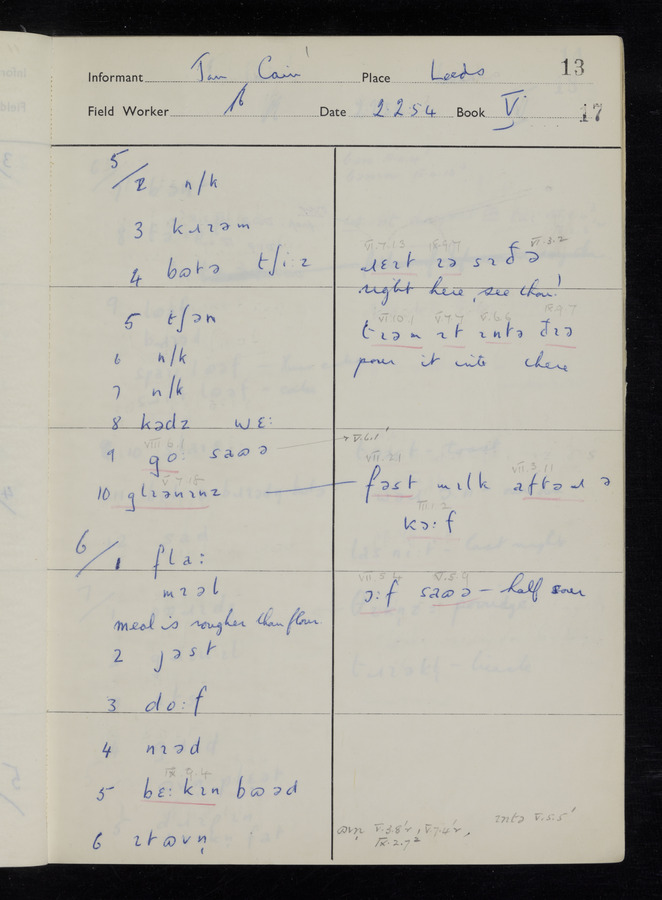 Informant Place Leeds 13
Field Worker Date 2 2 54 Book V 17
5/2 n/k
3 kɹɪəm
4 bɷtə tʃiːz
5 tʃən
6 n/k
7 n/k
8 kədz wɛː
VIII.6.1
9 goː saɷə
V.7.15
10 glɪənɪnz
6/1 flaː
mɪəl
meal is rougher than flour.
2 jəst
3 doːf
4 nɪəd
IX 9.4
5 bɛːkɪn bɷəd
6 ɪtɷvṇ
VI.7.13 IX.9.7 VI.3.2
ɹɛɪt ɪə sɪ ðə
right here, see thou!
VI.10.1 V.7.7 V.6.6 IX.9.7
tɪəm ɪt ɪntə ðɪə
pour it into there
V.6.1
VII.2.1 VII.5.11
fəst mɪlk aftəɹ ə
III.1.2
kɔːf
VII.5.4 V.5.9
ɔːf saɷə – half sour
ɪntə V.5.5
ɷvṇ V.3.8, V.7.4,
IX.2.7